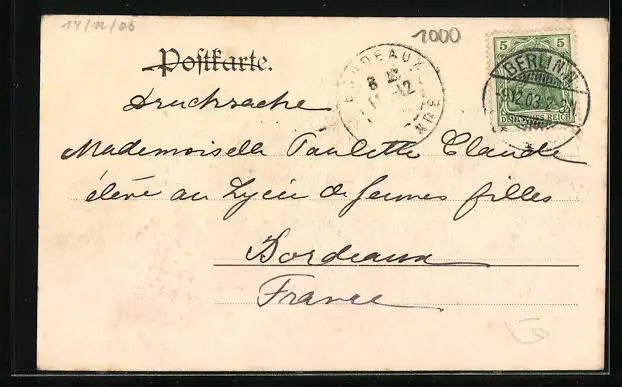 14/12/06
1000
Postkarte.
BORDEAUX
5
5
BERLIN
12.03.2
DEUTSCHES REICH
Drucksache
Mademoiselle Paulette Claude
élève au Lycée de Jeunes filles
Bordeaux
France